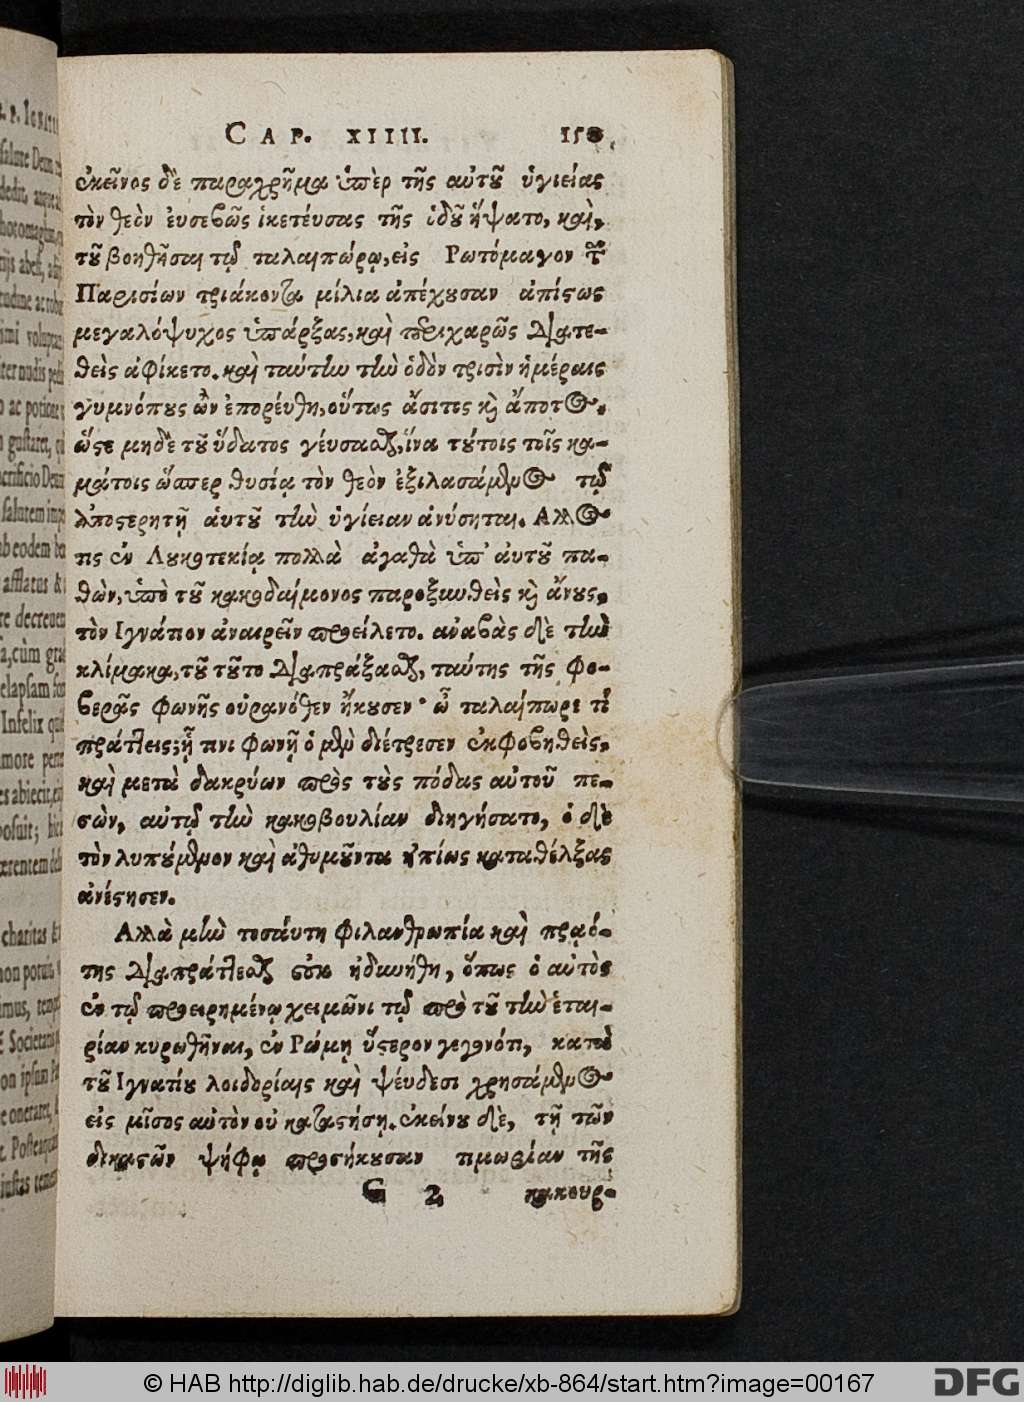 CAP. XIIII. 150
ἐκεῖνος δὲ παραχρῆμα ὑπὲρ τῆς αὐτοῦ ὑγιείας
τὸν θεὸν ἐυσεβῶς ἱκετέυσας τῆς ὁδοῦ ἥψατο, καὶ,
τοῦ βοηθῆσαι τῷ ταλαιπώρῳ, εἰς Ρωτόμαγον τῶν
Παρισίων τριάκοντα μίλια ἀπέχουσαν ἀπίστως
μεγαλόψυχος ὑπάρξας, καὶ περιχαρῶς διατε-
θεὶς ἀφίκετο. καὶ ταύτην τὴν ὁδὸν τρισὶν ἡμέραις
γυμνόπους ὢν ἐπορέυθη, οὕτως ἄσιτος καὶ ἄποτος,
ὥστε μηδὲ τοῦ ὕδατος γέυσασθαι, ἵνα τούτοις τοῖς κα-
μάτοις ὥσπερ θυσίᾳ τὸν θεὸν ἐξιλασάμενος τῷ
ἀποστερητῇ ἁυτοῦ τὴν ὑγίειαν ἀνύσηται. Αλλος
τις ἐν Λουκοτεκίᾳ πολλὰ ἀγαθὰ ὑπ' ἀυτοῦ πα-
θὼν, ὑπὸ τοῦ κακοδαίμονος παροξυνθεὶς καὶ ἄνους,
τὸν Ιγνάτιον ἀναιρεῖν προείλετο. ἀναβὰς δὲ τὴν
κλίμακα, τοῦ τοῦτο διαπράξασθαι, ταύτης τῆς φο-
βερᾶς φωνῆς οὐρανόθεν ἤκουσεν· ὦ ταλαίπωρε τί
πράττεις; ᾗ τινι φωνῇ ὁ μὲν διέτρεσεν ἐκφοβηθεὶς,
καὶ μετὰ δακρύων πρὸς τοὺς πόδας αὐτοῦ πε-
σὼν, αὐτῷ τὴν κακοβουλίαν διηγήσατο, ὁ δὲ
τὸν λυπούμενον καὶ ἀθυμοῦντα ἠπίως καταθέλξας
ἀνέστησεν.
Αλλὰ μὴν τοσάυτη φιλανθρωπία καὶ πρᾳό-
της διαπράττεσθαι οὐκ ἠδυνήθη, ὅπως ὁ αὐτὸς
ἐν τῷ προειρημένῳ χειμῶνι τῷ πρὸ τοῦ τὴν ἑται-
ρίαν κυρωθῆναι, ἐν Ρώμῃ ὕστερον γεγονότι, κατὰ
τοῦ Ιγνατίου λοιδορίαις καὶ ψέυδεσι χρησάμενος
εἰς μῖσος αὐτὸν οὐ καταστήσῃ. ἐκείνου δὲ, τῇ τῶν
δικαστῶν ψήφῳ προσήκουσαν τιμωρίαν τῆς
G 2 κακουρ-
© HAB http://diglib.hab.de/drucke/xb-864/start.htm?image=00167
DFG